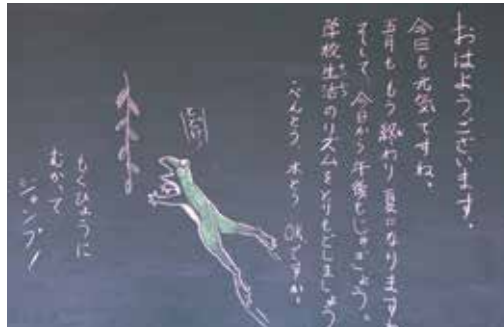 おはようございます。
今日も元気ですね。
五月ももう終わり 夏になります。
そして 今日から午後もじゅぎょう。
学校生活のリズムをとりもどしましょう
・べんとう 水とう OKですか。
もくひょうに
むかって
ジャンプ!